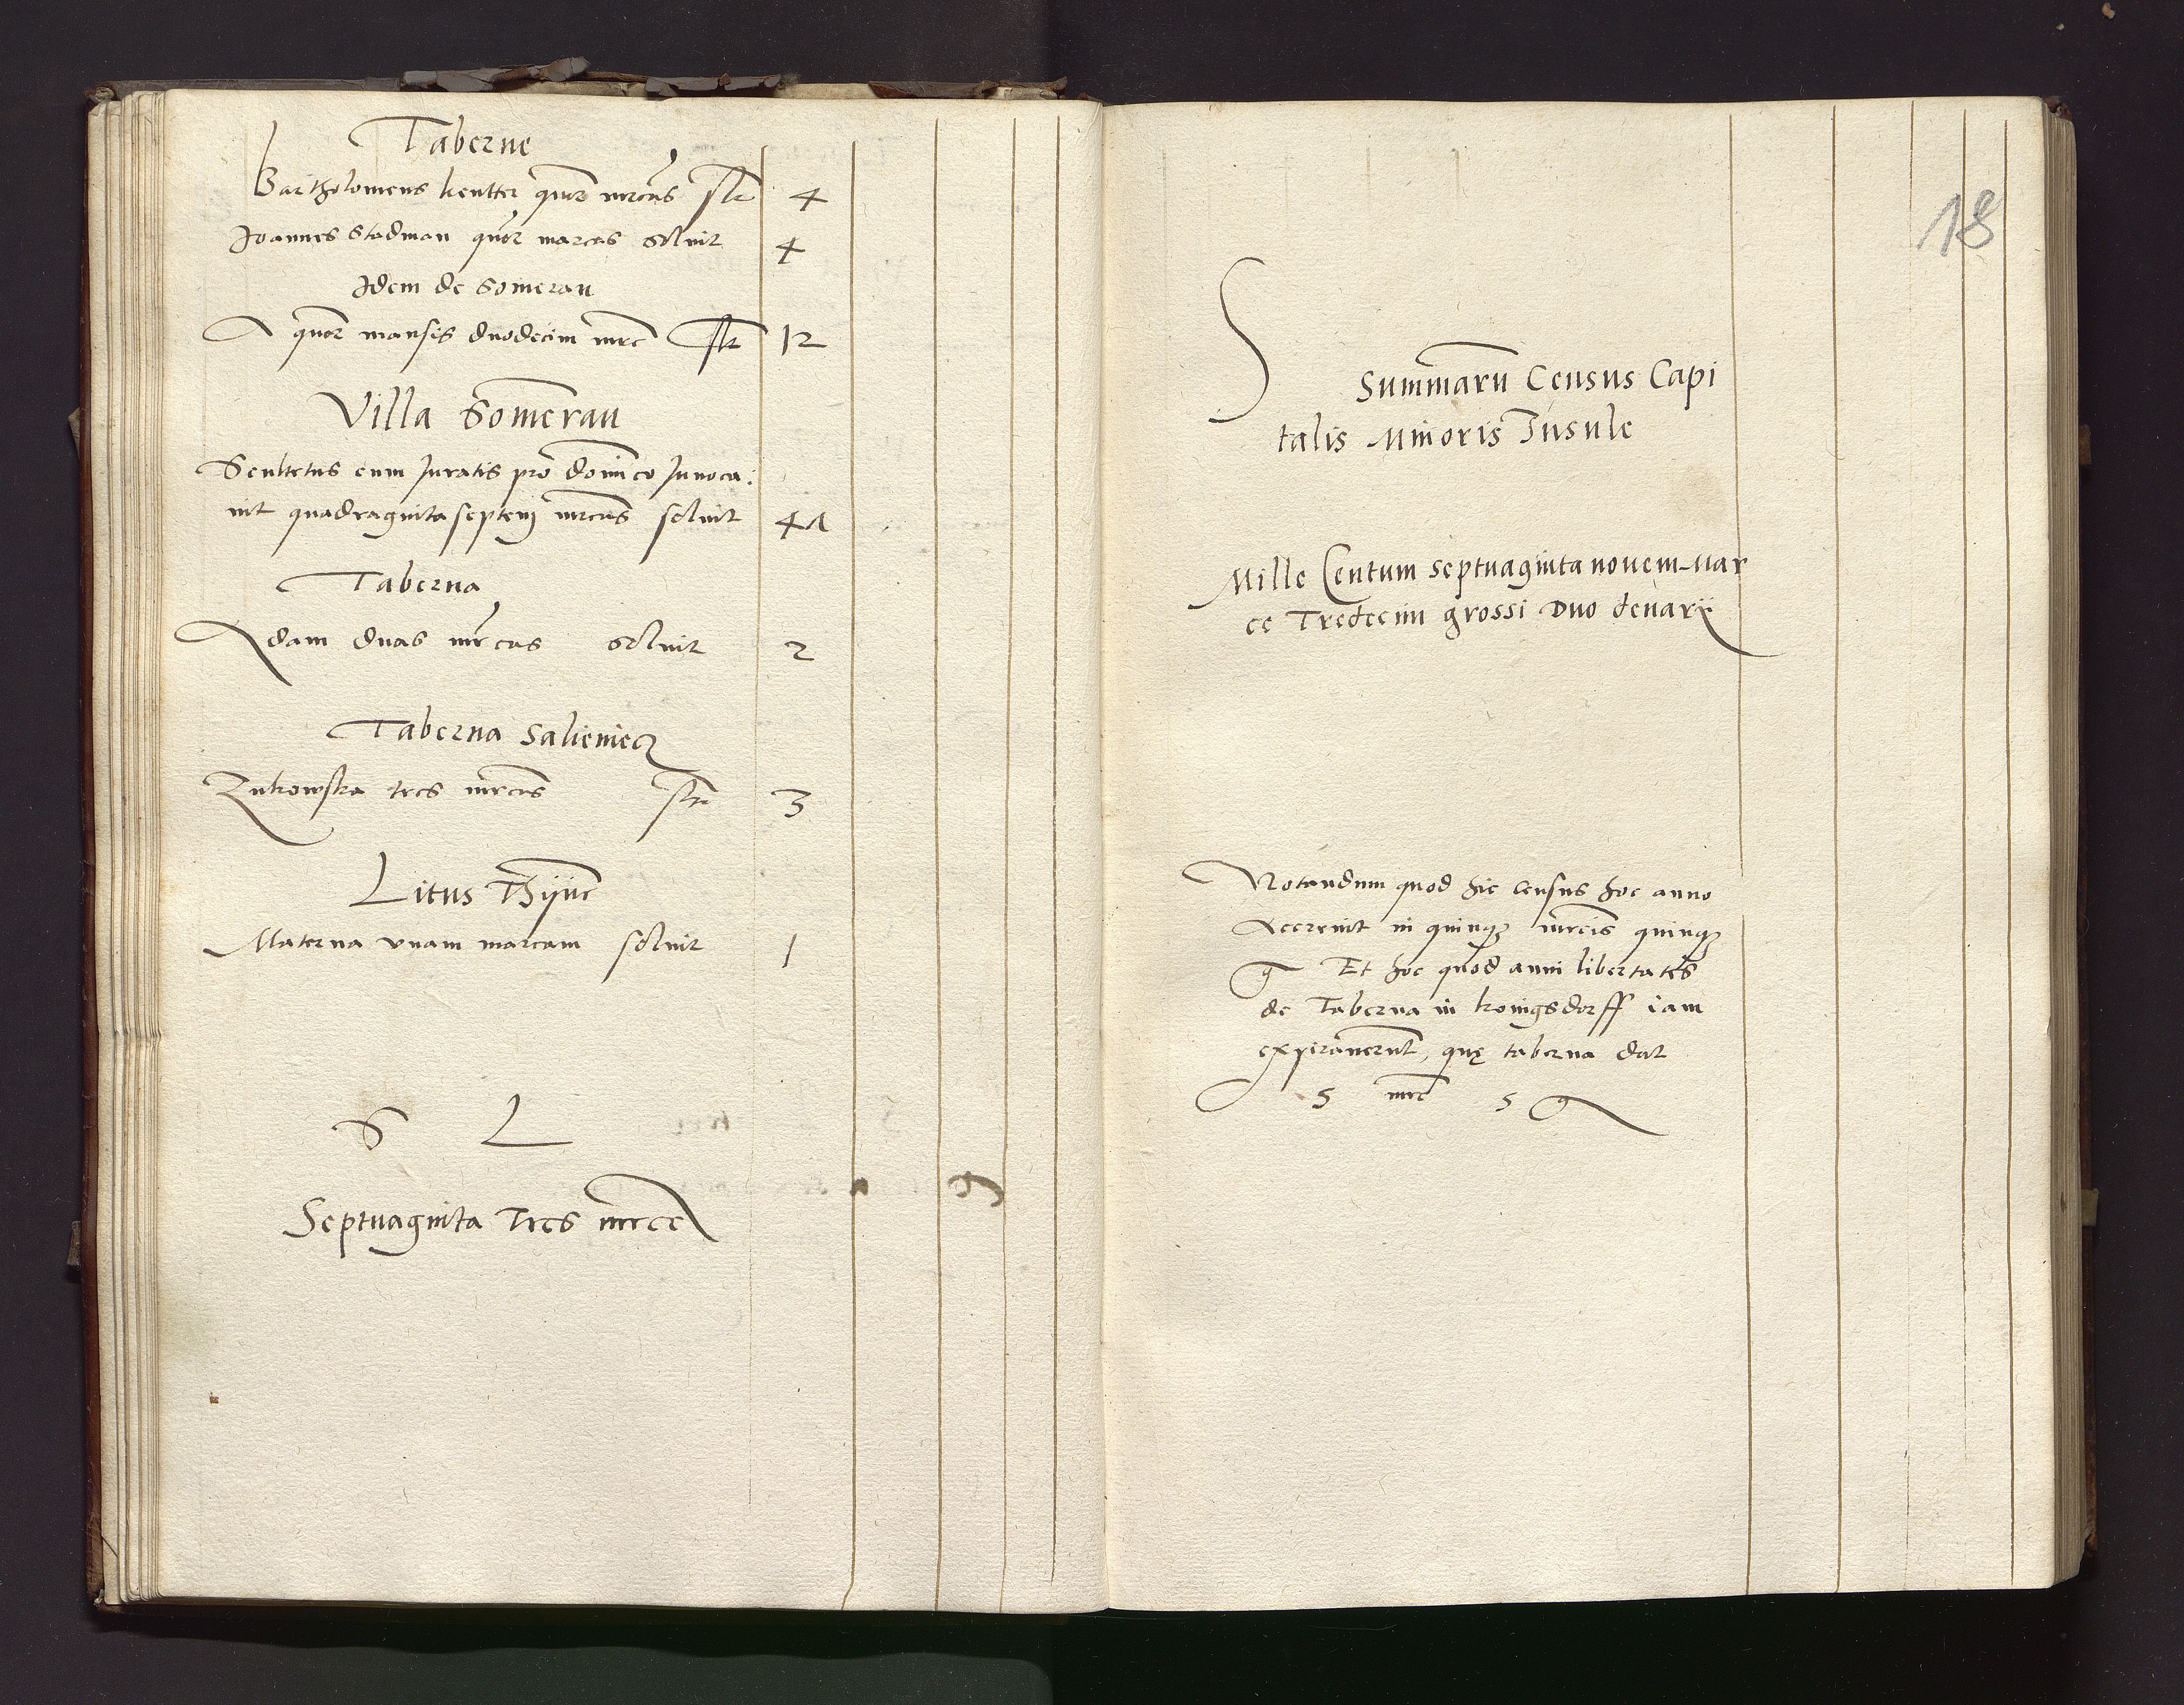 Taberne
Bartholomeus keutter quor mrcas slt 4
Joannes Stadman quor marcas soluit 4
Idem de Somerau
A quor mansis duodecim mrc slt 12
Villa Somerau
Scultetus cum Juratis pro dominico Junoca:
uit quadraginta septem mrcas soluit 47
Taberna
Adam duas mrcas soluit 2
Taberna Salieniecz
Zukowska tres mrcas slt 3
Litus Thijne
Materna vnam marcam soluit 1
S L
Septuaginta Tres mrce
18
S
Summaru Census Capi
talis Minoris Insule
Mille Centum septuaginta nouem mar
ce Tredecim grossi Duo denarij
Notandum quod hic census hoc anno
Accreuit in quinqz mrcis quinqz
g Et hoc quod anni libertatis
de Taberna in konigsdorff iam
expirauerunt, quę taberna dat
5 mrc 5 g